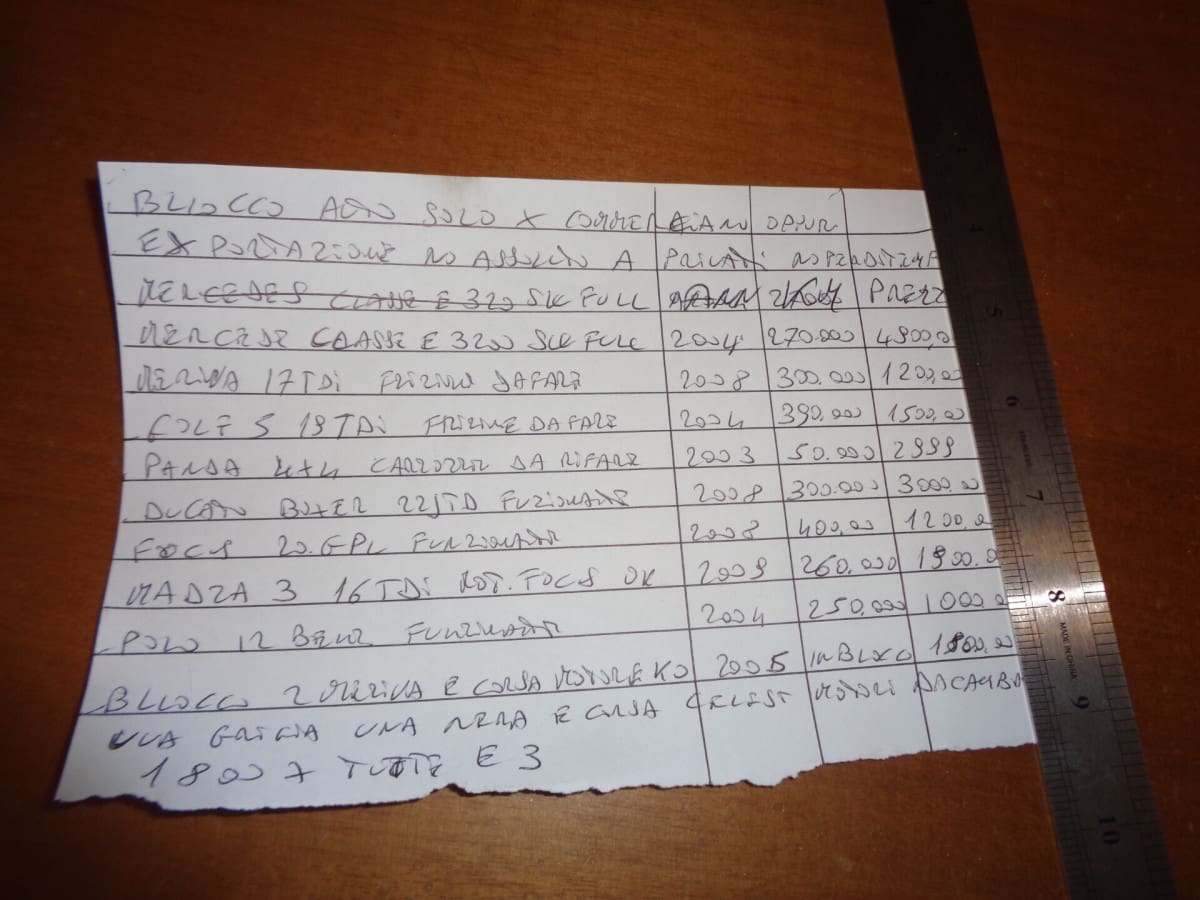 BLLOCCO AUTO SOLO X COMMERCIANO OPPUR
EXPORTAZIONE NO ASSOLUTO A PRIVATI NO PERDITEMP
MERCEDES CLASSE E 320 SW FULL PREZZ
MERCEDE CLASSE E 3200 SW FULL 2004 270.000 4900,0
MERIVA 17 TDI FRIZIONE DAFARE 2008 300.000 1200,00
GOLF 5 19 TDI FRIZINE DA FARE 2004 390.000 1500,00
PANDA 4X4 CARROZZR DA RIFARE 2003 50.000 2999
DUCATO BOXER 22JTD FUZIONANTE 2008 300.000 3000.00
FOCUS 20.GPL FUNZIONANTE 2008 400,00 1200.0
MADZA 3 16 TDI MOT.FOCS OK 2009 260.000 1900.0
POLO 12 BENZ FUNZIONANTE 2004 250.000 1000,0
BLLOCCO 2 MERIVA E CORSA MOTORE KO 2005 IN BLOCO 1800.00
UNA GRIGIA UNA NERA E CORSA CELEST MOTORI DACAMBI
1800 X TUTTE E 3
MADE IN CHINA
4 5 6 7 8 9 10